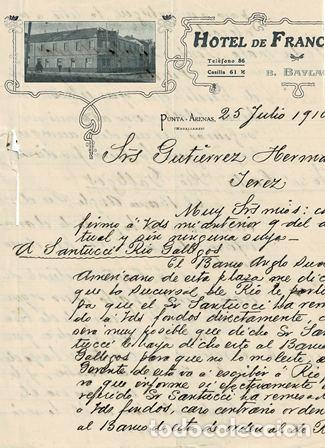 HOTEL DE FRANC
Teléfono 86
Casilla 61
B. BAYLA
PUNTA-ARENAS, 25 Julio 191
(MAGALLANES)
Srs Gutiérrez Herma
Jerez
Muy Srs mios: co
firmo á Vds mi anterior q del a
tual y sin ninguna suya.
A Santucci Rio Gallegos
El Banco Anglo Sud
Americano de esta plaza me di
que la sucursal de Rio le
ba que el Sr Santucci ha rem
do á Vds fondos directamente,
pero muy posible que dicho Sr San
tucci haya dicho esto al Banco
Gallegos para que no lo moleste,
Gerente de esta va á escribir á Rio
vo que informe si efectivamente
referido, Sr Santucci ha remesa
á Vds fondos, caso contrario orden
al Banco de esta
todocoleccion